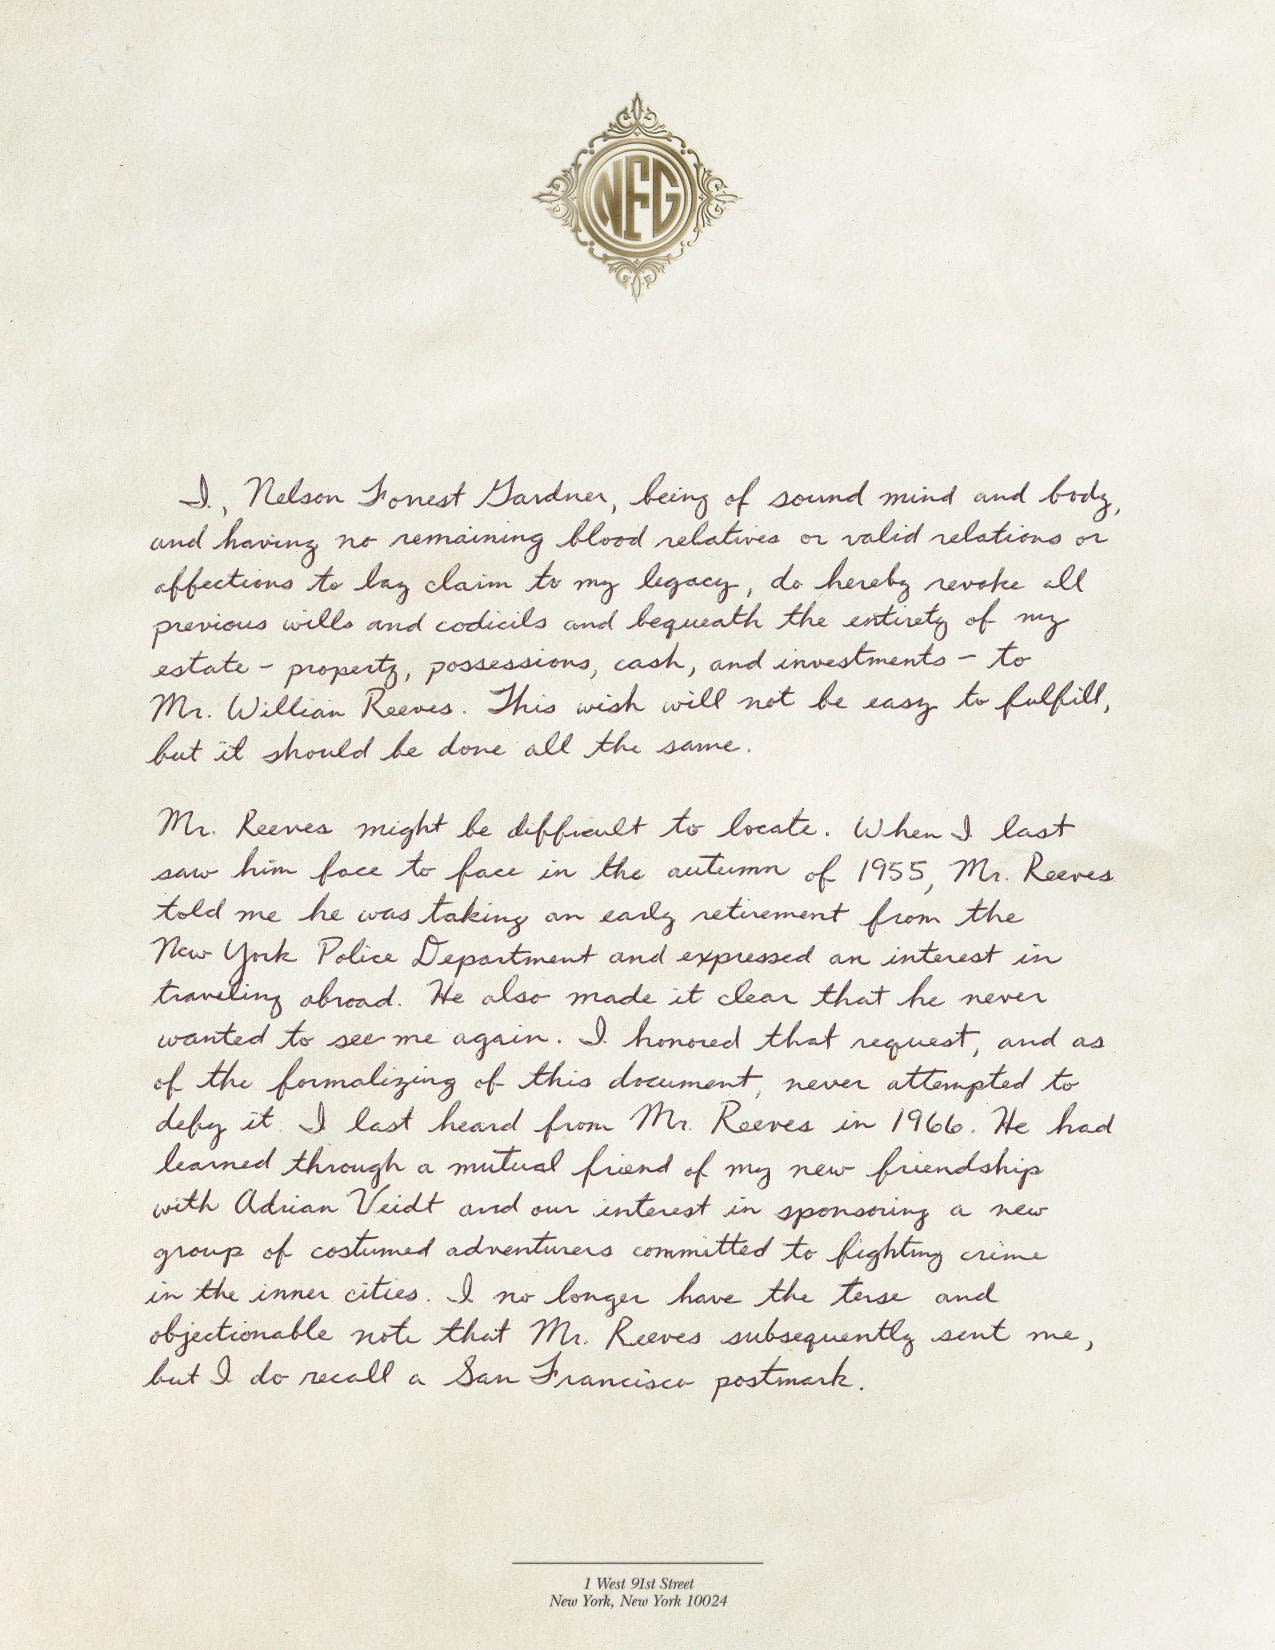 NFG
I, Nelson Forrest Gardner, being of sound mind and body,
and having no remaining blood relatives or valid relations or
affections to lay claim to my legacy, do hereby revoke all
previous wills and codicils and bequeath the entirety of my
estate - property, possessions, cash, and investments - to
Mr. William Reeves. This wish will not be easy to fulfill,
but it should be done all the same.
Mr. Reeves might be difficult to locate. When I last
saw him face to face in the autumn of 1955, Mr. Reeves
told me he was taking an early retirement from the
New York Police Department and expressed an interest in
traveling abroad. He also made it clear that he never
wanted to see me again. I honored that request, and as
of the formalizing of this document, never attempted to
defy it. I last heard from Mr. Reeves in 1966. He had
learned through a mutual friend of my new friendship
with Adrian Veidt and our interest in sponsoring a new
group of costumed adventurers committed to fighting crime
in the inner cities. I no longer have the terse and
objectionable note that Mr. Reeves subsequently sent me,
but I do recall a San Francisco postmark.
1 West 91st Street
New York, New York 10024